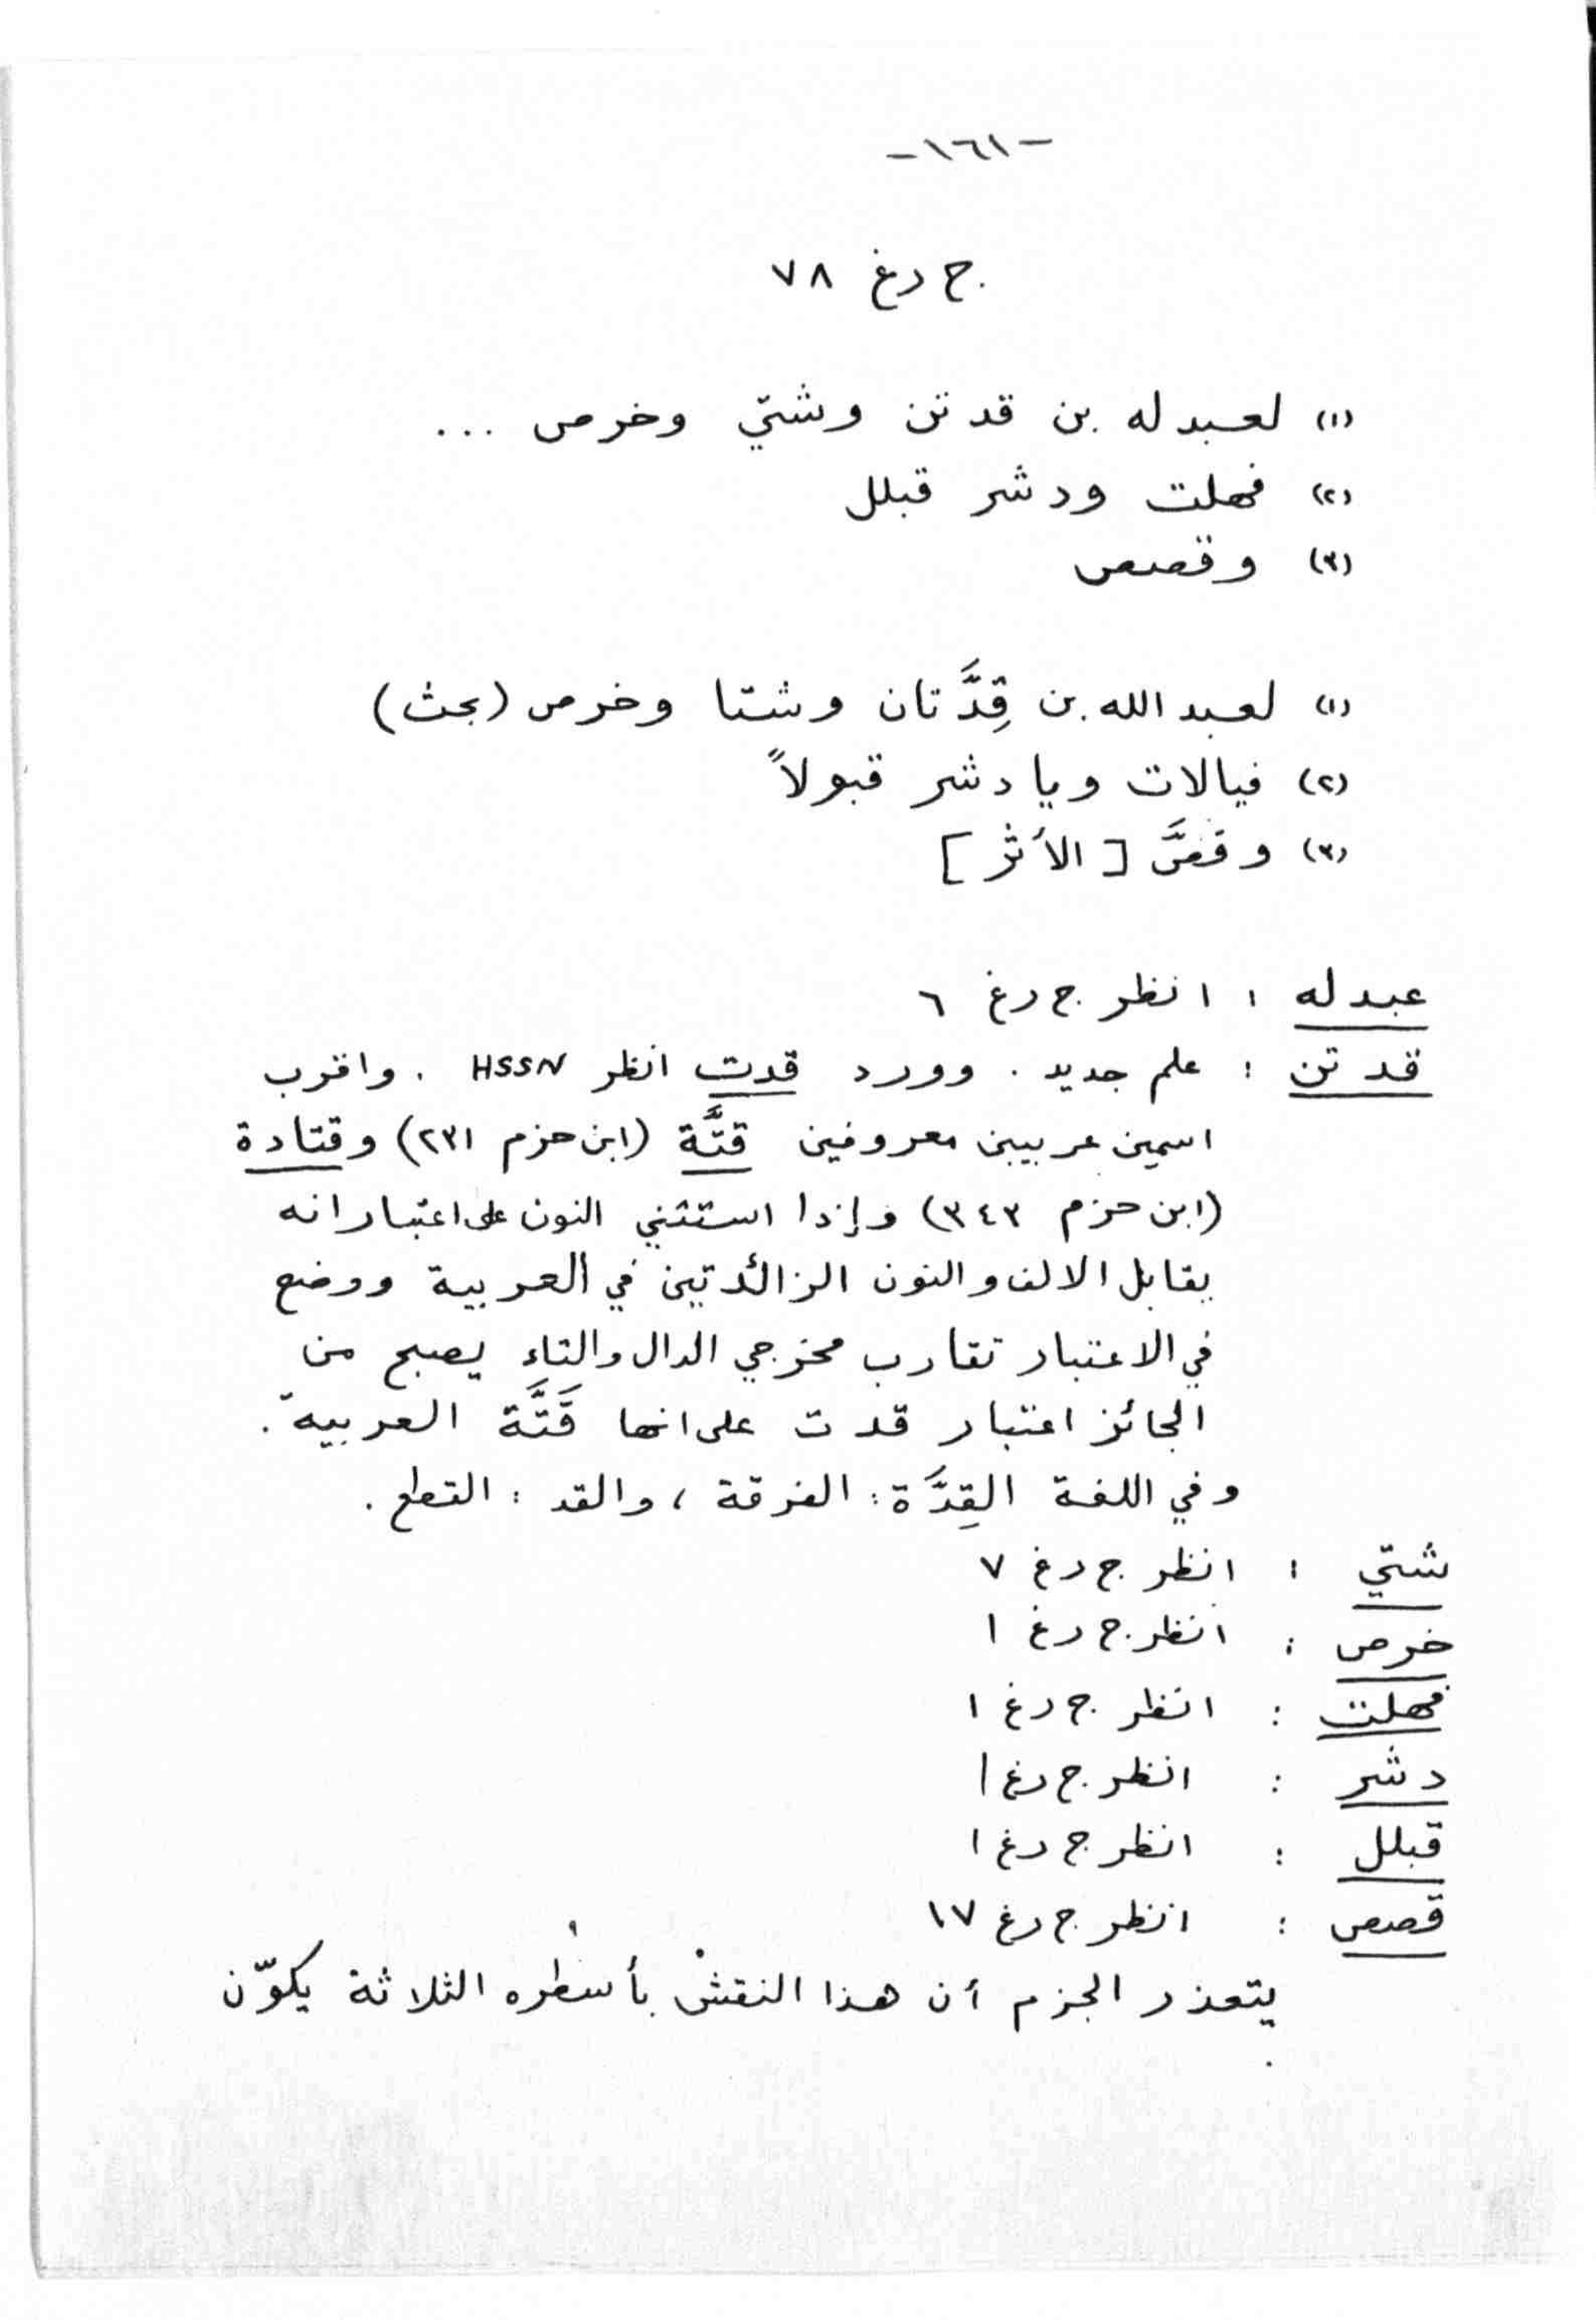 -١٦١-
ج دغ ٧٨
(١) لعبدله بن قدتن وشتي وخرص ...
(٢) فهلت ودشر قبلل
(٣) وقصص
(١) لعبد الله بن قِدَّتان وشتا وخرص (بحث)
(٢) فيالات ويا دشر قبولاً
(٣) وقصَّ [الأثر]
عبدله : انظر ج دغ ٦
قدتن : علم جديد . وورد قدت انظر HSSN . واقرب
اسمين عربيين معروفين قتَّة (ابن حزم ٢٣١) وقتادة
(ابن حزم ٣٤٣) وإذا استثني النون على اعتبار انه
يقابل الالف والنون الزائدتين في العربية ووضع
في الاعتبار تقارب مخرجي الدال والتاء يصبح من
الجائز اعتبار قدت على انها قَتَّة العربية .
وفي اللغة القِدَّة : الفرقة ، والقد : القطع .
شتي : انظر ج دغ ٧
خرص : انظر ج دغ ١
فهلت : انظر ج دغ ١
دشر : انظر ج دغ ١
قبلل : انظر ج دغ ١
قصص : انظر ج دغ ١٧
يتعذر الجزم أن هذا النقش بأسطره الثلاثة يكوّن